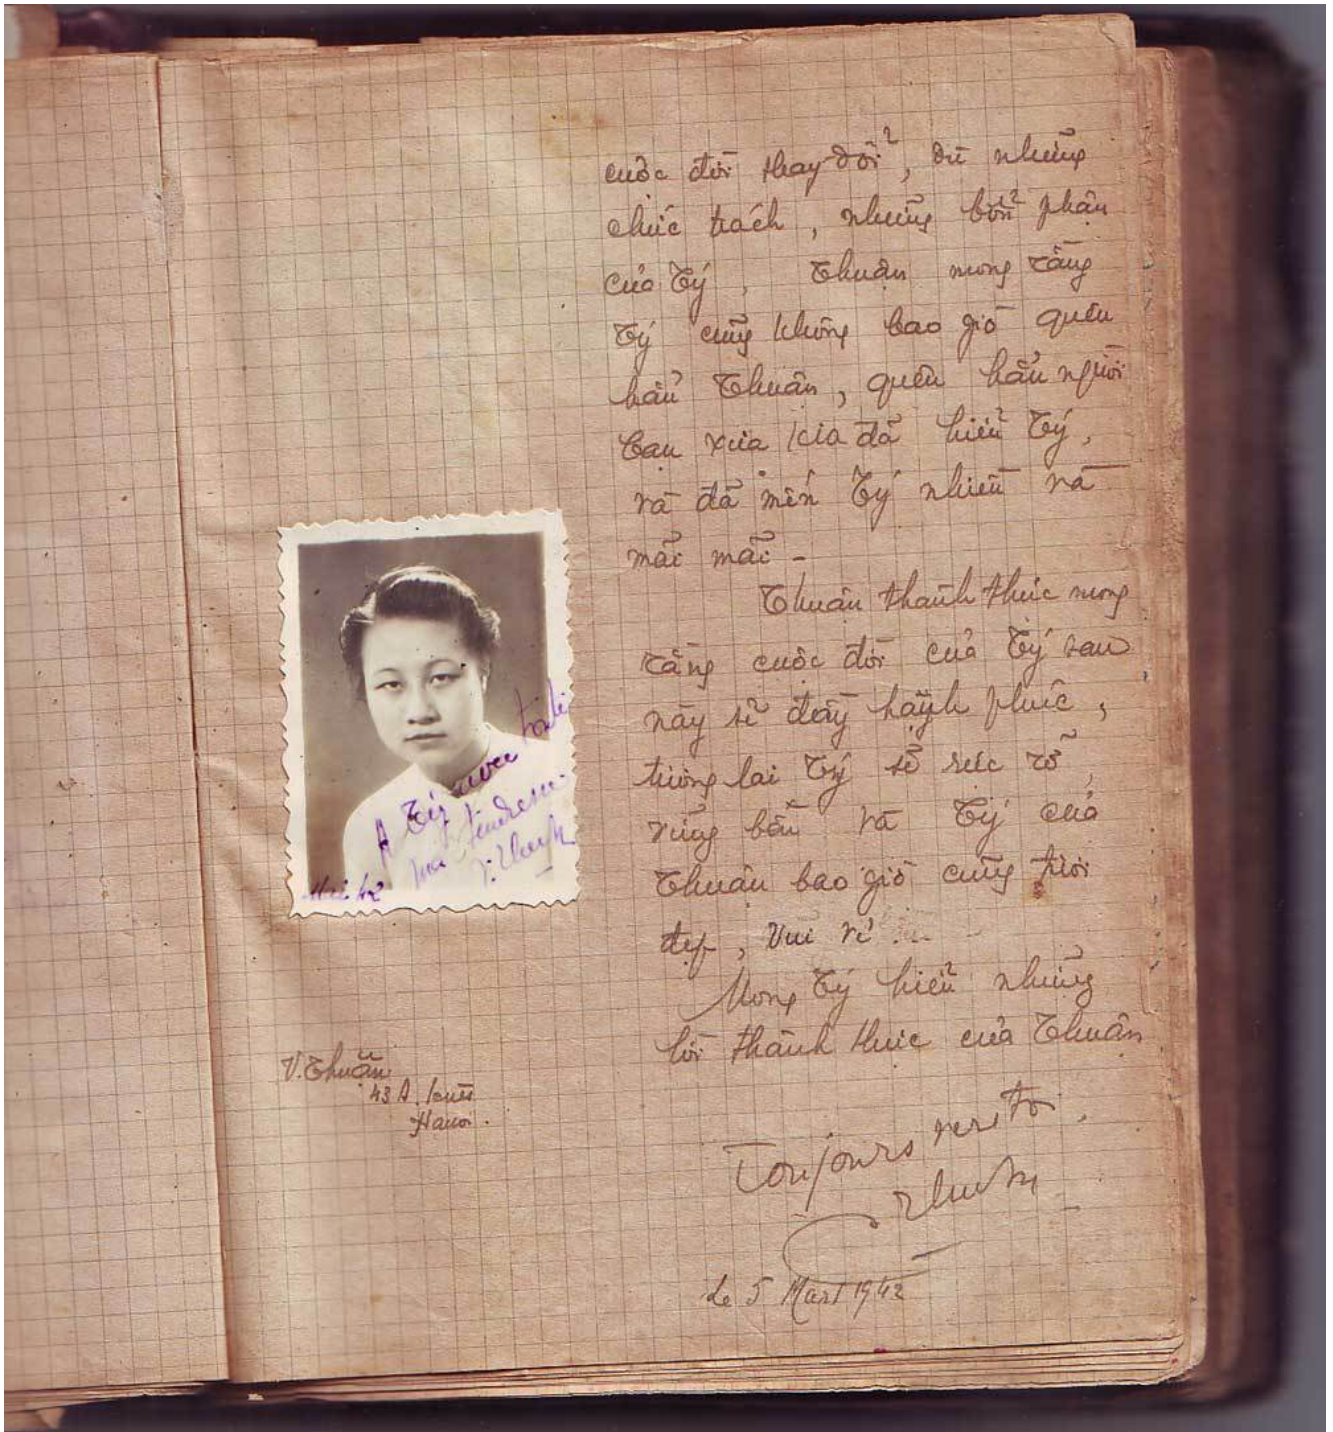 cuộc đời thay đổi, dù những
chức trách, những bổn phận
của Tý, Thuận mong rằng
Tý cũng không bao giờ quên
hẳn Thuận, quên hẳn người
bạn xưa kia đã hiểu Tý,
và đã mến Tý nhiều và
mãi mãi -
Thuận thành thực mong
rằng cuộc đời của Tý sau
này sẽ đầy hạnh phúc,
tương lai Tý sẽ rực rỡ,
vững bền và Tý của
Thuận bao giờ cũng tươi
đẹp, vui vẻ
Mong Tý hiểu những
lời thành thực của Thuận
Toujours
Thuận
Le 5 Mars 1942
A Tý avec toute
ma tendresse
V. Thuận
43 A.
Hanoi.